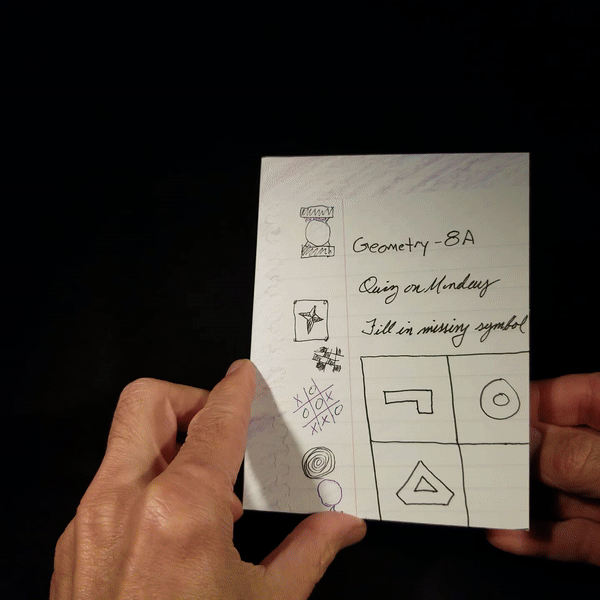 Geometry - 8A
Quiz on Monday
Fill in missing symbol
X O
O O X
X X O